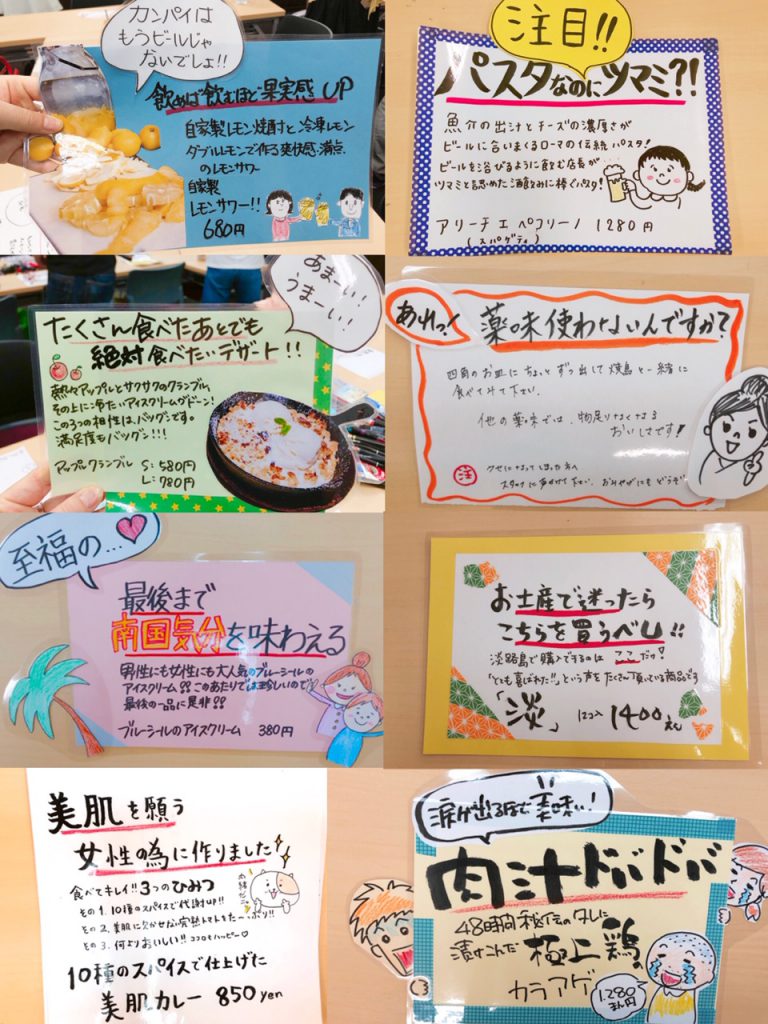 カンパイは
もうビールじゃ
ないでしょ!!
飲めば飲むほど果実感UP
自家製レモン焼酎と冷凍レモン
ダブルレモンで作る爽快感満点
のレモンサワー
自家製
レモンサワー!!
680円
注目!!
パスタなのにツマミ?!
魚介の出汁とチーズの濃厚さが
ビールに合いまくるローマの伝統パスタ!
ビールを浴びるように飲む店長が
ツマミと認めた酒飲みに捧ぐパスタ!
アリーチェ エ ペコリーノ 1280円
(スパゲティ)
あまーい!
うまーい!
たくさん食べたあとでも
絶対食べたいデザート!!
熱々アップルとサクサクのクランブル、
その上に冷たいアイスクリームがドーン!
この3つの相性は、バツグンです。
満足度もバツグン!!!
アップルクランブル S:580円
L:780円
あれっ!
薬味使わないんですか?
四角のお皿にちょっとずつ出して焼鳥と一緒に
食べてみて下さい。
他の薬味では、物足りなくなる
おいしさです!
注
クセになってしまった方へ
スタッフに声かけて下さい。おみやげにもどうぞ
至福の...
最後まで
南国気分を味わえる
男性にも女性にも大人気のブルーシールの
アイスクリーム!! このあたりでは珍しいので
最後の一品に是非!!
ブルーシールのアイスクリーム 380円
お土産で迷ったら
こちらを買うべし!!
淡路島で購入できるのは ここだけ!
「とても喜ばれた!!」という声をたくさん頂いている商品です
「淡」 12コ入 1400
美肌を願う
女性の為に作りました
食べてキレイ!! 3つのひみつ
その1. 10種のスパイスで代謝UP!!
その2. 美肌に欠かせない完熟トマトをた〜っぷり!!
その3. 何よりおいしい!! ココロもハッピー♡
10種のスパイスで仕上げた
美肌カレー 850yen
涙が出るほど美味い!
肉汁ドバドバ
48時間秘伝のタレに
漬けこんだ極上鶏の
カラアゲ
1.280
まん円